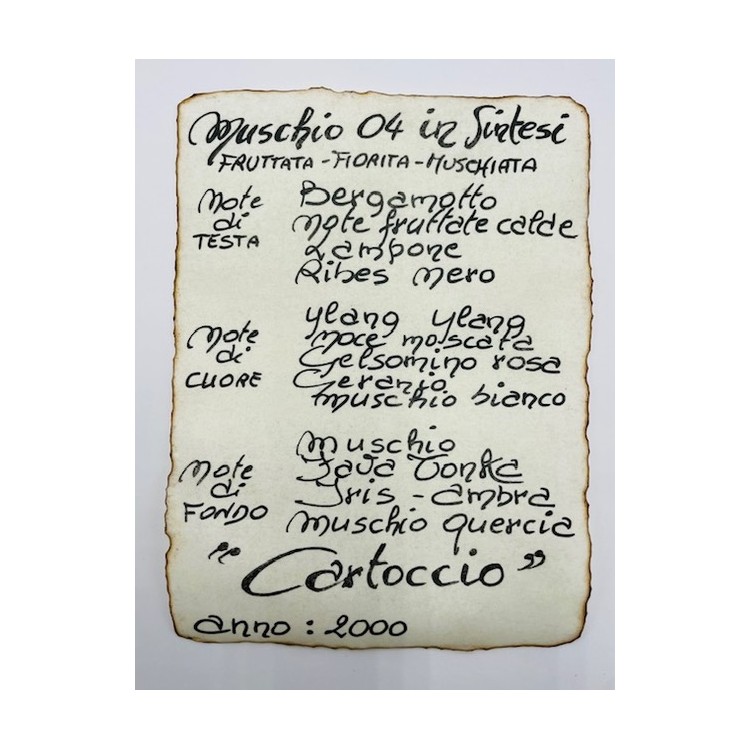 Muschio 04 in Sintesi
FRUTTATA - FIORITA - MUSCHIATA
Note di TESTA
Bergamotto
note fruttate calde
Lampone
Ribes nero
Note di CUORE
ylang ylang
noce moscata
Gelsomino rosa
Geranio
muschio bianco
Note di FONDO
muschio
Fava Tonka
Iris - ambra
muschio quercia
"Cartoccio"
anno : 2000